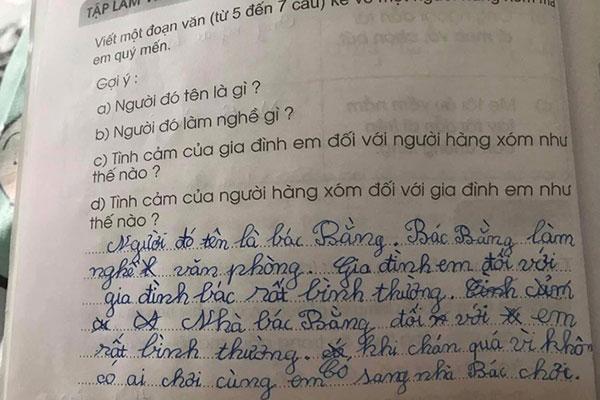 TẬP LÀM V
Viết một đoạn văn (từ 5 đến 7 câu) kể về một người hàng xóm mà
em quý mến.
Gợi ý :
a) Người đó tên là gì ?
b) Người đó làm nghề gì ?
c) Tình cảm của gia đình em đối với người hàng xóm như
thế nào ?
d) Tình cảm của người hàng xóm đối với gia đình em như
thế nào ?
Người đó tên là bác Bằng. Bác Bằng làm
nghề văn phòng. Gia đình em đối với
gia đình bác rất bình thương. Tình cảm
Nhà bác Bằng đối với em
rất bình thường. khi chán quá vì khôn
có ai chơi cùng em bố sang nhà Bác chơi.